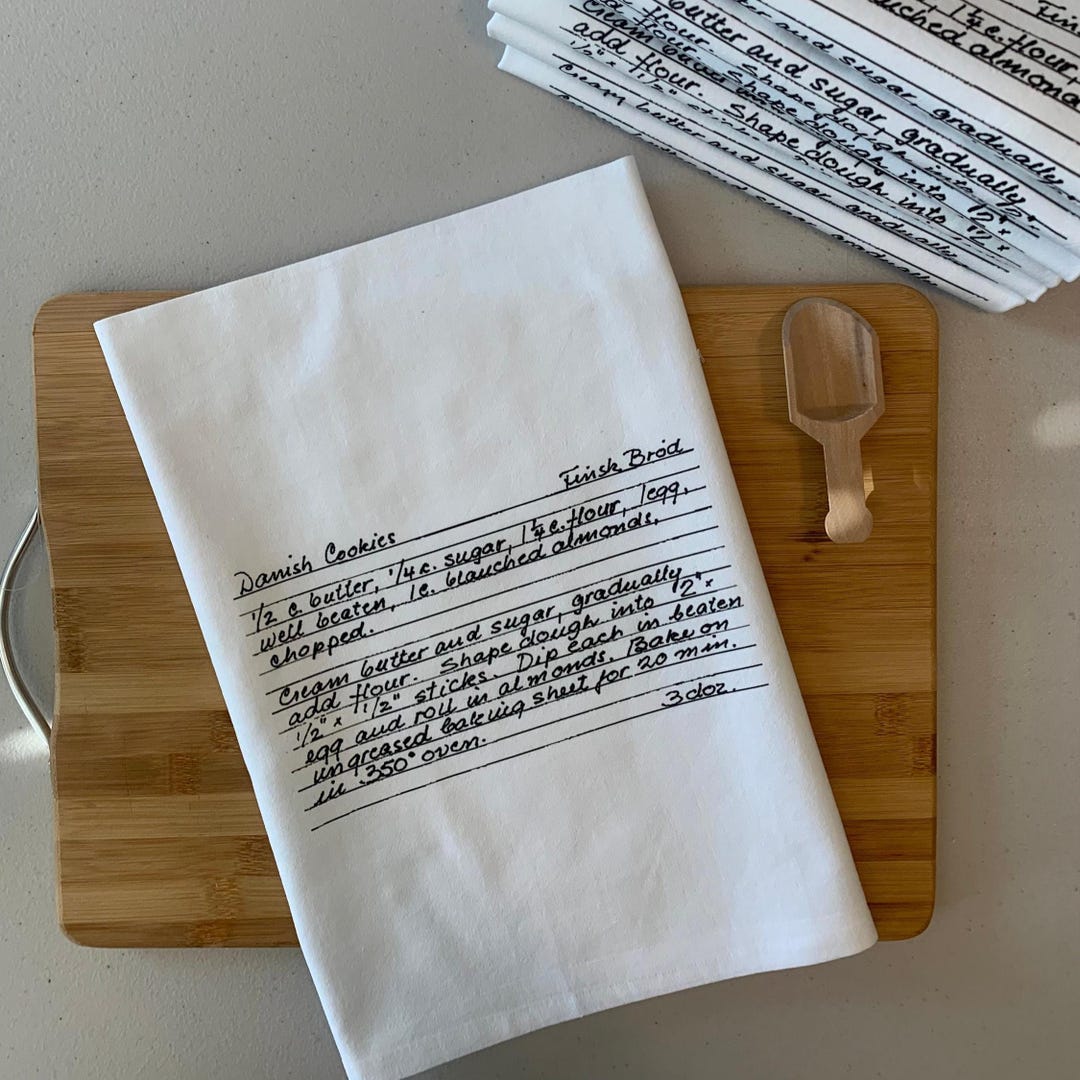 Danish Cookies Finsk Bröd
1/2 c. butter, 1/4 c. sugar, 1 1/4 c. flour, 1 egg,
well beaten, 1c. blanched almonds,
chopped.
Cream butter and sugar, gradually
add flour. Shape dough into 1/2" x
1/2" x 1 1/2" sticks. Dip each in beaten
egg and roll in almonds. Bake on
ungreased baking sheet for 20 min.
in 350° oven. 3 doz.
1 1/4 c. flour,
blanched almonds
butter and sugar, gradually
add flour. Shape dough into 1/2" x
Cream butter and sugar gradually